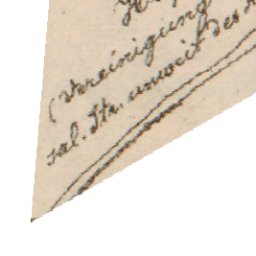 (Vereinigung
sal. Str. unweit des